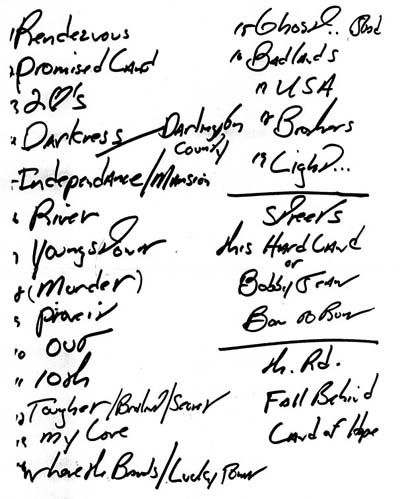 1 Rendezvous
2 Promised Land
3 20's
4 Darkness Darlington
County
5 Independance/Mansion
6 River
7 Youngstown
8 (Murder)
9 prove it
10 out
11 10th
12 Tougher/Brilliant/Secret
13 my Love
14 Where the Bands/Lucky Town
15 Ghost..
16 Badlands
17 USA
18 Brothers
19 Light...
Streets
this Hard Land
or
Bobby Jean
Born to Run
th. Rd.
Fall Behind
Land of Hope